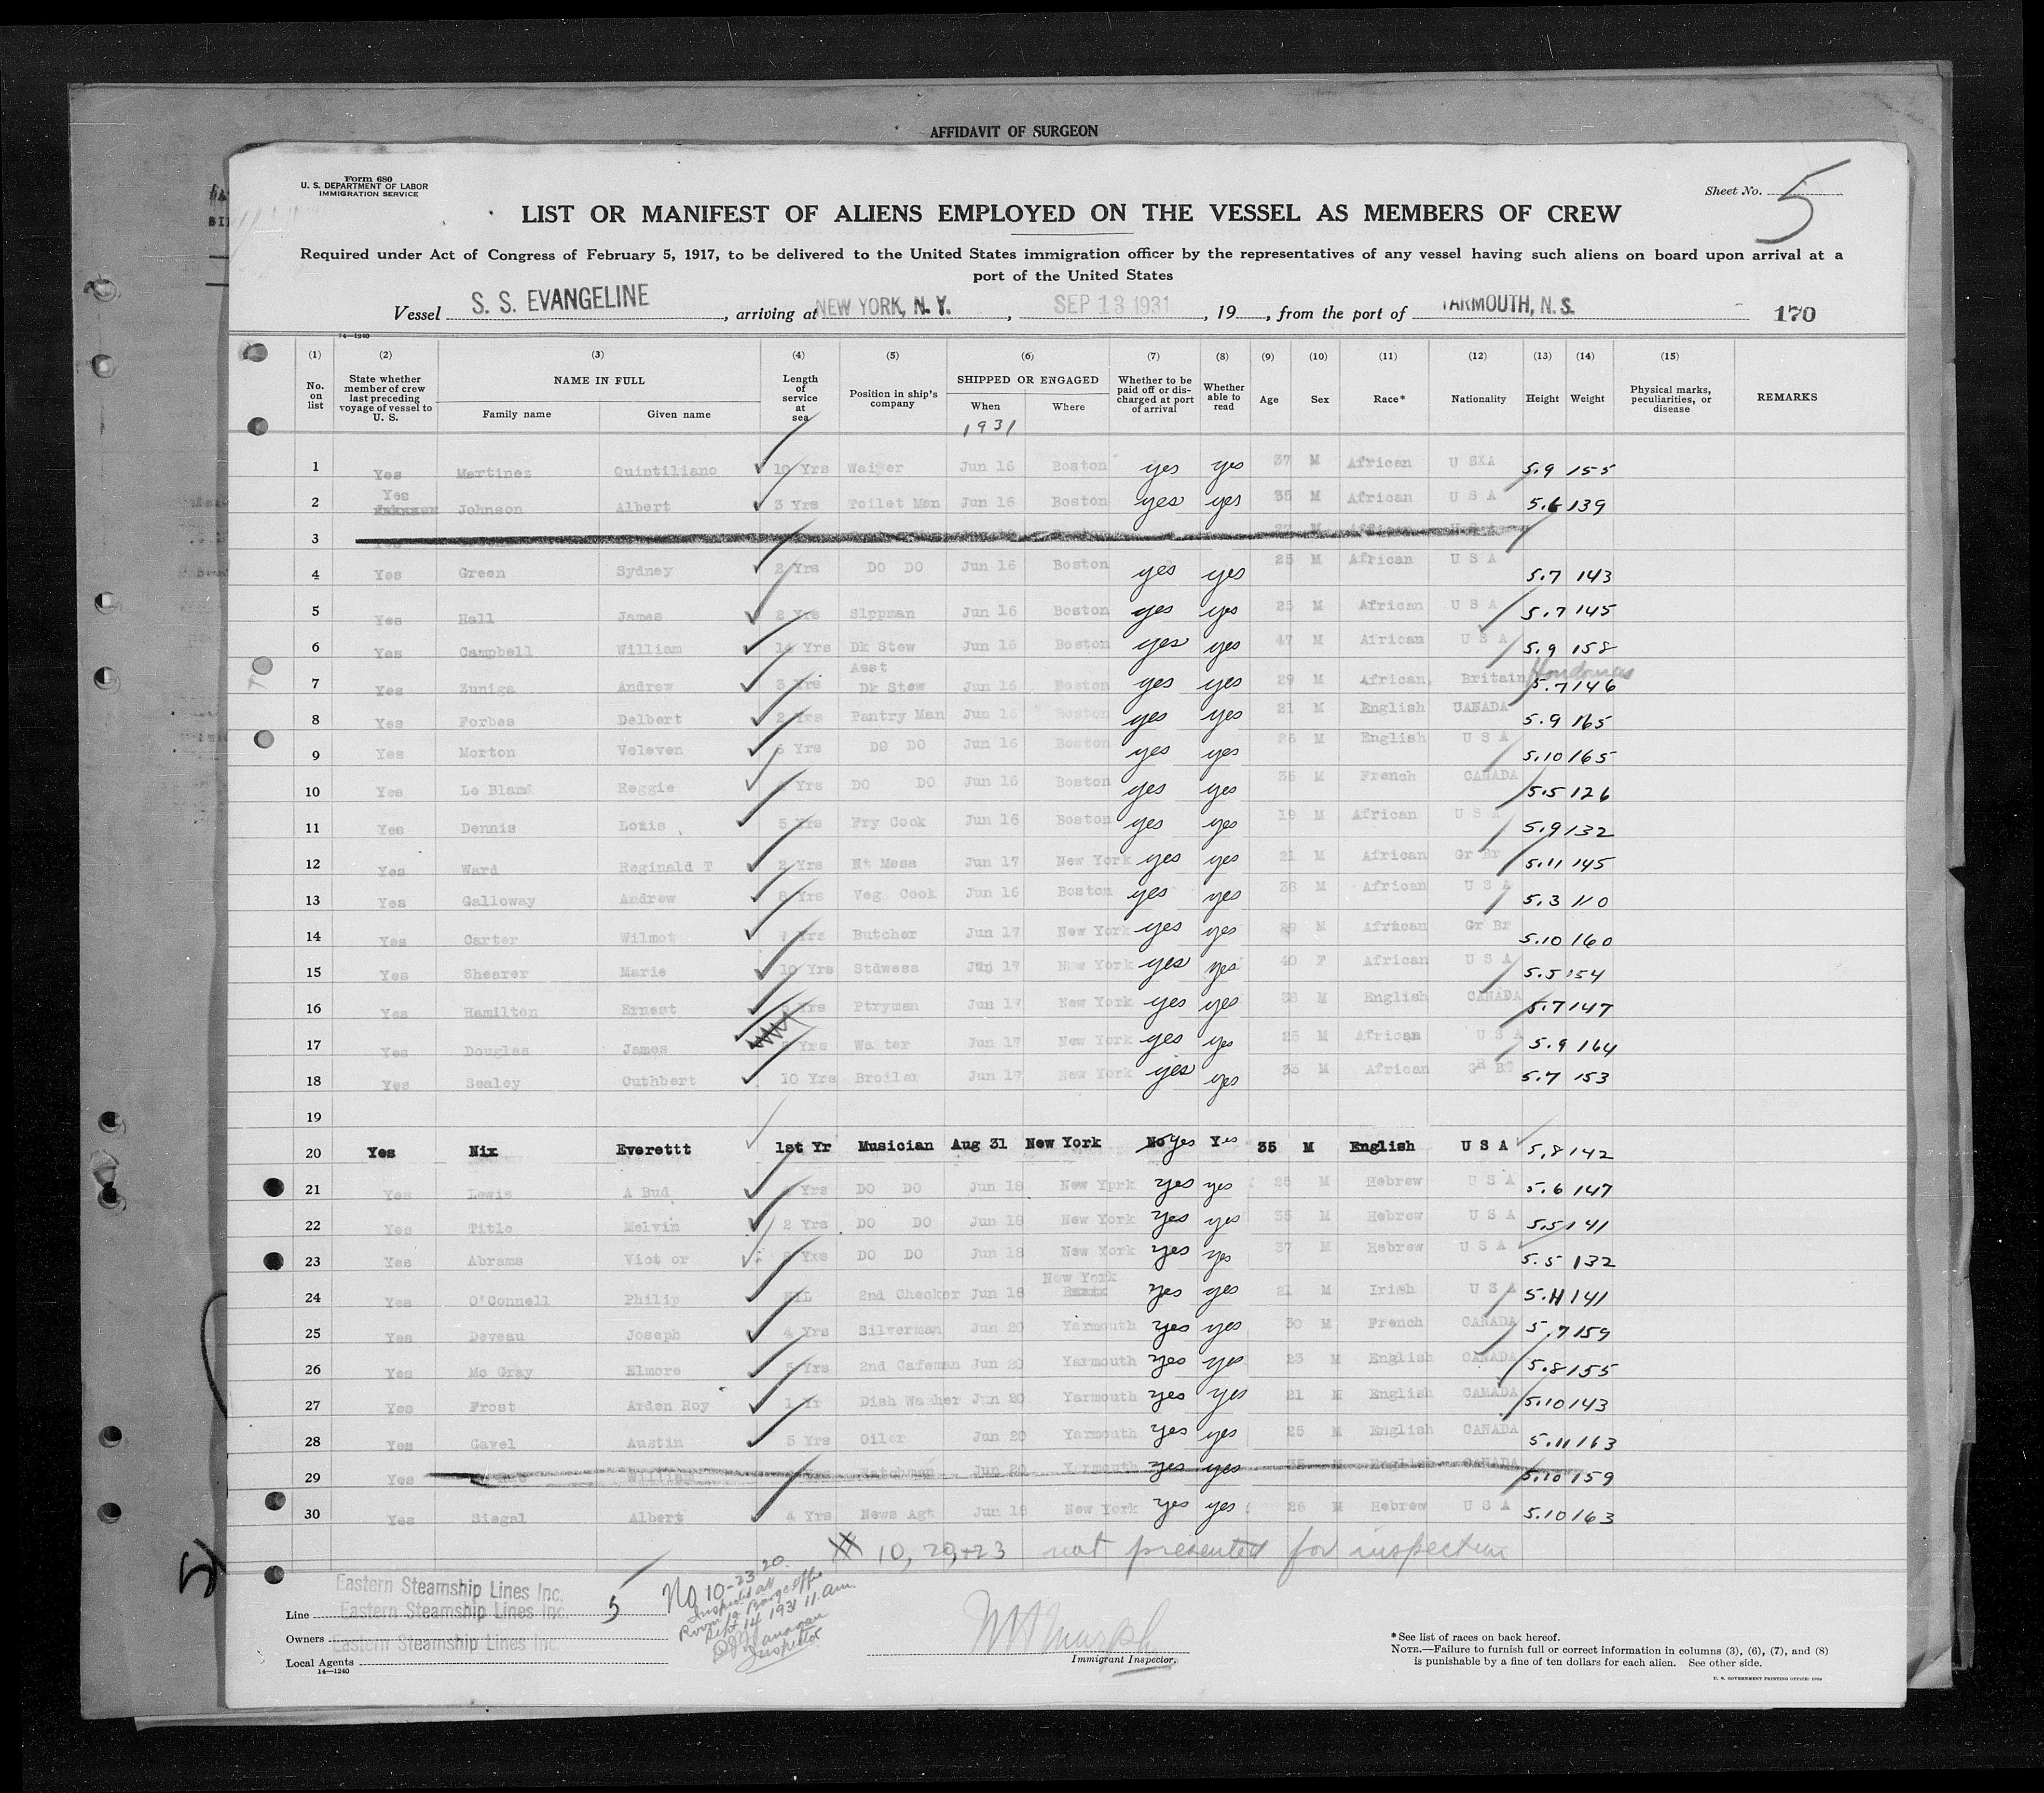 AFFIDAVIT OF SURGEON
Form 680
U. S. DEPARTMENT OF LABOR
IMMIGRATION SERVICE
Sheet No. 5
LIST OR MANIFEST OF ALIENS EMPLOYED ON THE VESSEL AS MEMBERS OF CREW
Required under Act of Congress of February 5, 1917, to be delivered to the United States immigration officer by the representatives of any vessel having such aliens on board upon arrival at a
port of the United States
Vessel S. S. EVANGELINE, arriving at NEW YORK, N. Y., SEP 13 1931, 19, from the port of YARMOUTH, N. S. 170
14—1240
(1) (2) (3) (4) (5) (6) (7) (8) (9) (10) (11) (12) (13) (14) (15)
No. on list State whether member of crew last preceding voyage of vessel to U. S. NAME IN FULL Family name Given name Length of service at sea Position in ship's company SHIPPED OR ENGAGED When Where Whether to be paid off or discharged at port of arrival Whether able to read Age Sex Race* Nationality Height Weight Physical marks, peculiarities, or disease REMARKS
1931
1 Yes Martinez Quintiliano 10 Yrs Waiter Jun 16 Boston yes yes 37 M African U S A 5.9 155
2 Yes Johnson Albert 3 Yrs Toilet Man Jun 16 Boston yes yes 35 M African U S A 5.6 139
3 Yes
4 Yes Green Sydney 2 Yrs DO DO Jun 16 Boston yes yes 25 M African U S A 5.7 143
5 Yes Hall James 2 Yrs Slppman Jun 16 Boston yes yes 25 M African U S A 5.7 145
6 Yes Campbell William 14 Yrs Dk Stew Jun 16 Boston yes yes 47 M African U S A 5.9 158
7 Yes Zuniga Andrew 3 Yrs Asst Dk Stew Jun 16 Boston yes yes 29 M African Britain Honduras 5.7 146
8 Yes Forbes Delbert 2 Yrs Pantry Man Jun 16 Boston yes yes 21 M English CANADA 5.9 165
9 Yes Morton Veleven Yrs DO DO Jun 16 Boston yes yes 26 M English U S A 5.10 165
10 Yes Le Blanc Reggie Yrs DO DO Jun 16 Boston yes yes 35 M French CANADA 5.5 126
11 Yes Dennis Louis 5 Yrs Fry Cook Jun 16 Boston yes yes 19 M African U S A 5.9 132
12 Yes Ward Reginald T 2 Yrs Nt Mess Jun 17 New York yes yes 21 M African Gr Br 5.11 145
13 Yes Galloway Andrew 8 Yrs Veg Cook Jun 16 Boston yes yes 38 M African U S A 5.3 110
14 Yes Carter Wilmot Yrs Butcher Jun 17 New York yes yes M African Gr Br 5.10 160
15 Yes Shearer Marie 10 Yrs Stdwess Jun 17 New York yes yes 40 F African U S A 5.5 154
16 Yes Hamilton Ernest Yrs Ptryman Jun 17 New York yes yes 38 M English CANADA 5.7 147
17 Yes Douglas James Yrs Wa ter Jun 17 New York yes yes 25 M African U S A 5.9 164
18 Yes Sealey Cuthbert 10 Yrs Broiler Jun 17 New York yes yes M African Gr Br 5.7 153
19
20 Yes Nix Everettt 1st Yr Musician Aug 31 New York No yes Yes 35 M English U S A 5.8 142
21 Yes Lewis A Bud Yrs DO DO Jun 18 New Yprk yes yes 25 M Hebrew U S A 5.6 147
22 Yes Title Melvin 2 Yrs DO DO Jun 18 New York yes yes 35 M Hebrew U S A 5.5 141
23 Yes Abrams Vict or Yrs DO DO Jun 18 New York yes yes 37 M Hebrew U S A 5.5 132
24 Yes O'Connell Philip NIL 2nd Checker Jun 18 New York yes yes 21 M Irish U S A 5.11 141
25 Yes Deveau Joseph 4 Yrs Silverman Jun 20 Yarmouth yes yes 30 M French CANADA 5.7 159
26 Yes Mc Gray Elmore 5 Yrs 2nd Cafeman Jun 20 Yarmouth yes yes 23 M English CANADA 5.8 155
27 Yes Frost Arden Roy 1 Yr Dish Washer Jun 20 Yarmouth yes yes 21 M English CANADA 5.10 143
28 Yes Gavel Austin 5 Yrs Oiler Jun 20 Yarmouth yes yes 25 M English CANADA 5.11 163
29 Yes William Watchman Jun 20 Yarmouth yes yes 35 M English CANADA 5.10 159
30 Yes Siegal Albert 4 Yrs News Agt Jun 18 New York yes yes 26 M Hebrew U S A 5.10 163
10, 20, +23 not presented for inspection
Line Eastern Steamship Lines Inc.
Owners Eastern Steamship Lines Inc.
Local Agents Eastern Steamship Lines Inc
14—1240
5
No 10-23-20
Inspected at
Room 19 Barge Office
Sept 14 1931 11 am.
Inspector
Immigrant Inspector.
*See list of races on back hereof.
NOTE.—Failure to furnish full or correct information in columns (3), (6), (7), and (8)
is punishable by a fine of ten dollars for each alien. See other side.
U. S. GOVERNMENT PRINTING OFFICE: 1929
5